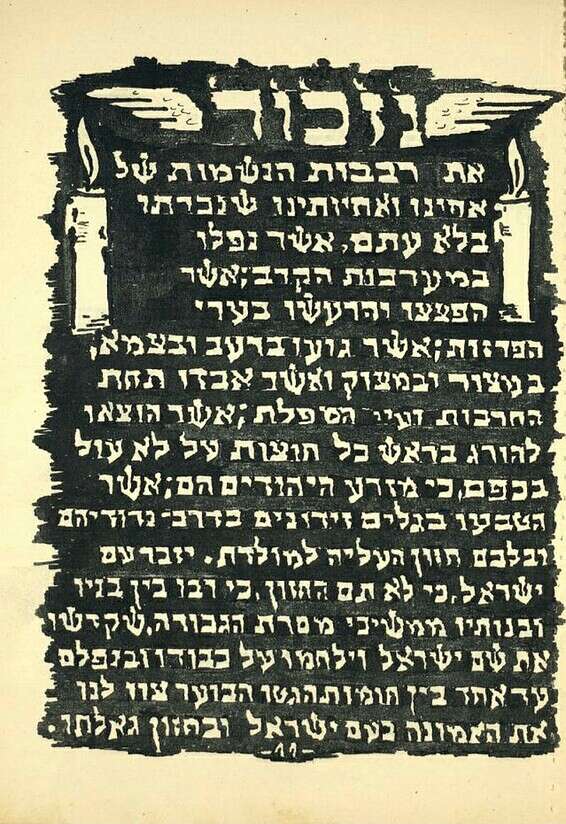 נזכור
את רבבות הנשמות של
אחינו ואחיותינו שנכרתו
בלא עתם, אשר נפלו
במערכות הקרב; אשר
הפצצו והרעשו בערי
הפרזות; אשר גועו ברעב ובצמא,
במצור ובמצוק ואשר אבדו תחת
החרבות ועיי המפלת; אשר הוצאו
להורג בראש כל חוצות על לא עול
בכפם, כי מזרע היהודים הם; אשר
הטבעו בגלים הזידונים בדרכי נדודיהם
ובלבם חזון העליה למולדת. יזכר עם
ישראל, כי לא תם החזון, כי רבו בין בניו
ובנותיו ממשיכי מסרת הגבורה, שקדשו
את שם ישראל וילחמו על כבודו ובנפלם
עד אחד בין חומות הגטו הבוער צוו לנו
את האמונה בעם ישראל ובחזון גאלתו.